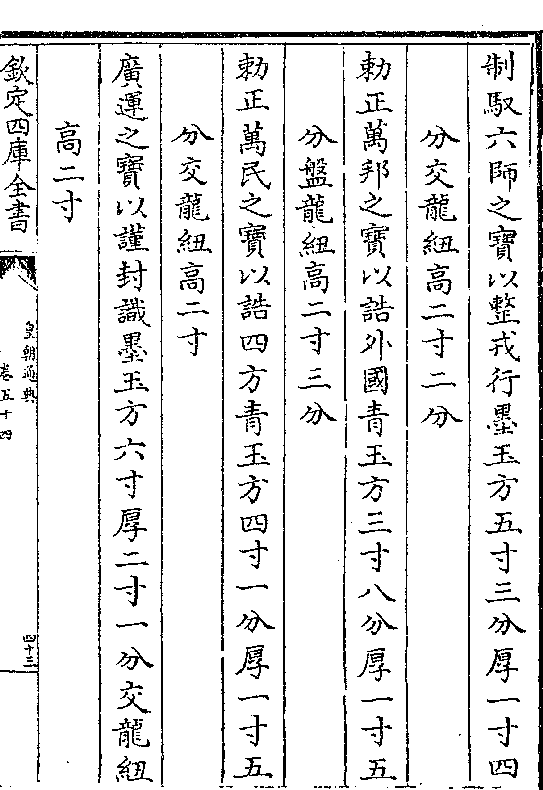 制馭六師之寶以整戎行墨玉方五寸三分厚一寸四
分交龍紐高二寸二分
勅正萬邦之寶以誥外國青玉方三寸八分厚一寸五
分盤龍紐高二寸三分
勅正萬民之寶以誥四方青玉方四寸一分厚一寸五
分交龍紐高二寸
廣運之寶以謹封識墨玉方六寸厚二寸一分交龍紐
高二寸
欽定四庫全書
皇朝通典
卷五十四
四十三